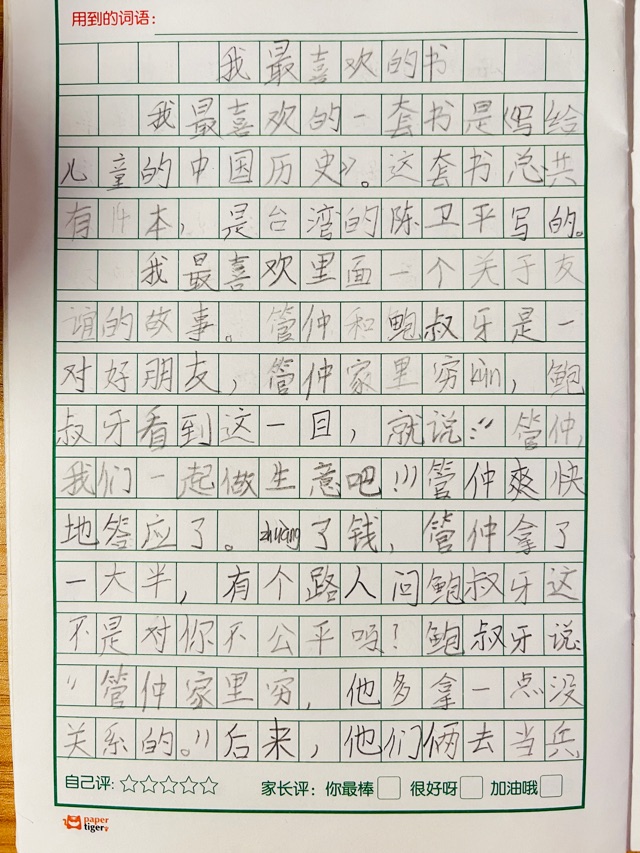 用到的词语：
我最喜欢的书
我最喜欢的一套书是《写给
儿童的中国历史》。这套书总共
有14本，是台湾的陈卫平写的。
我最喜欢里面一个关于友
谊的故事。管仲和鲍叔牙是一
对好朋友，管仲家里穷kùn，鲍
叔牙看到这一目，就说：“管仲，
我们一起做生意吧！”管仲爽快
地答应了。zhuàng了钱，管仲拿了
一大半，有个路人问鲍叔牙这
不是对你不公平吗？鲍叔牙说
“管仲家里穷，他多拿一点没
关系的。”后来，他们俩去当兵
自己评：☆☆☆☆☆ 家长评：你最棒□ 很好呀□ 加油哦□
paper
tiger